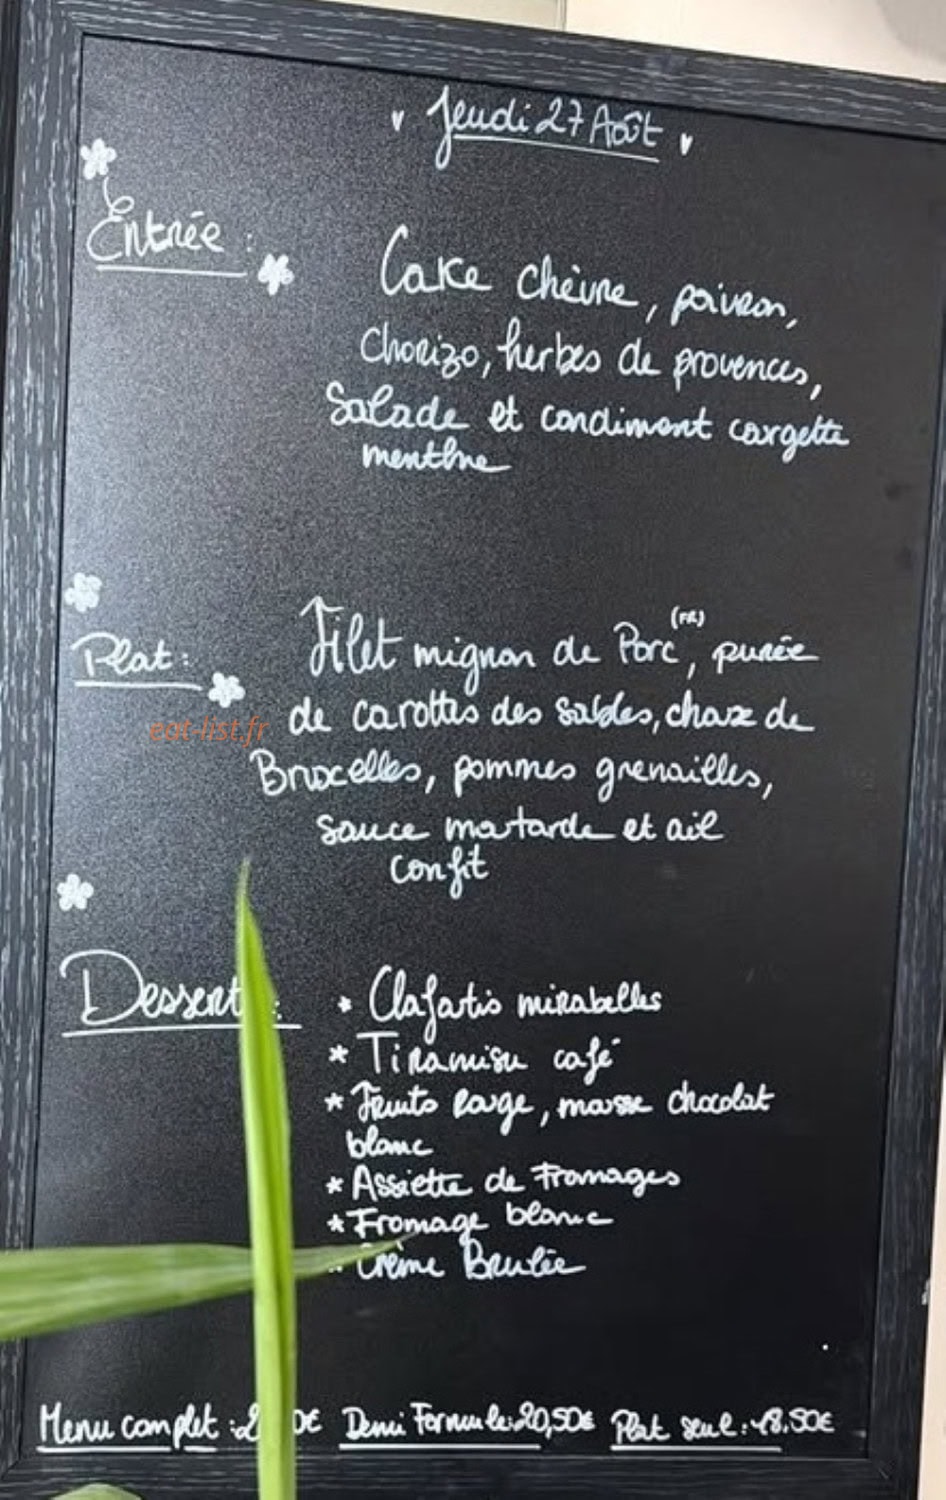 Jeudi 27 Août
Entrée :
Cake chèvre, poivron,
chorizo, herbes de provences,
Salade et condiment courgette
menthe
Plat :
Filet mignon de Porc (FR), purée
de carottes des sables, choux de
Bruxelles, pommes grenailles,
sauce moutarde et ail
confit
eat-list.fr
Dessert :
* Clafoutis mirabelles
* Tiramisu café
* Fruits rouge, mousse chocolat
blanc
* Assiette de Fromages
* Fromage blanc
Crème Brulée
Menu complet : Demi Formule : 20,50€ Plat seul : 18,50€